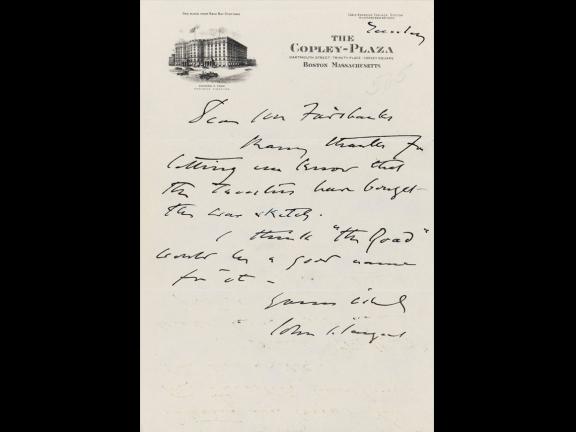 ONE BLOCK FROM BACK BAY STATIONS
THE
COPLEY-PLAZA
DARTMOUTH STREET · TRINITY PLACE · COPLEY SQUARE
BOSTON MASSACHUSETTS
Dear Mr Fairbanks
Many thanks for
letting me know that
the Trustees have bought
the war sketch.
I think "the Road"
would be a good name
for it -
Yours truly
John S. Sargent